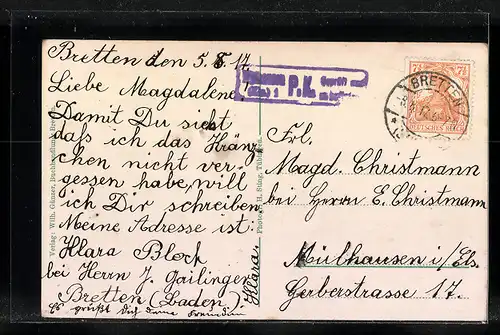 Bretten den 5.8.17
Liebe Magdalene,
Damit Du sieht
daß ich das Kränz
chen nicht ver-
gessen habe, will
ich Dir schreiben
Meine Adresse ist:
Klara Bloch
bei Herrn J. Gailinger
Bretten (Baden)
Es grüßt Dich Deine Freundin
Klara.
Verlag: Wilh. Gänzer, Buchhandlung, Bretten.
Photogr. H. Süng, Tübingen.
P.K.
7½ 7½
DEUTSCHES REICH
BRETTEN
Frl.
Magd. Christmann
bei Herrn E. Christmann
Mülhausen i/Els.
Gerberstrasse 17.